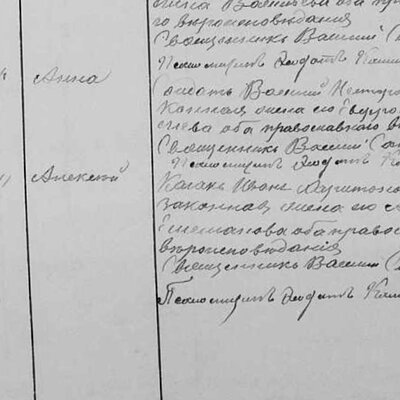 жена Васильева оба пра
го вѣроисповѣданія
Священникъ Василій С
Псаломщикъ Діодотъ Каши
Анна
Солдатъ Василій
конная жена его Евдо
оба православнаго в
Священникъ Василій Са
Псаломщикъ Діодотъ К
Алексѣй
Казакъ Иванъ Харитоно
законная жена его
Степанова оба правос
вѣроисповѣданія
Священникъ Василій С
Псаломщикъ Діодотъ Каши